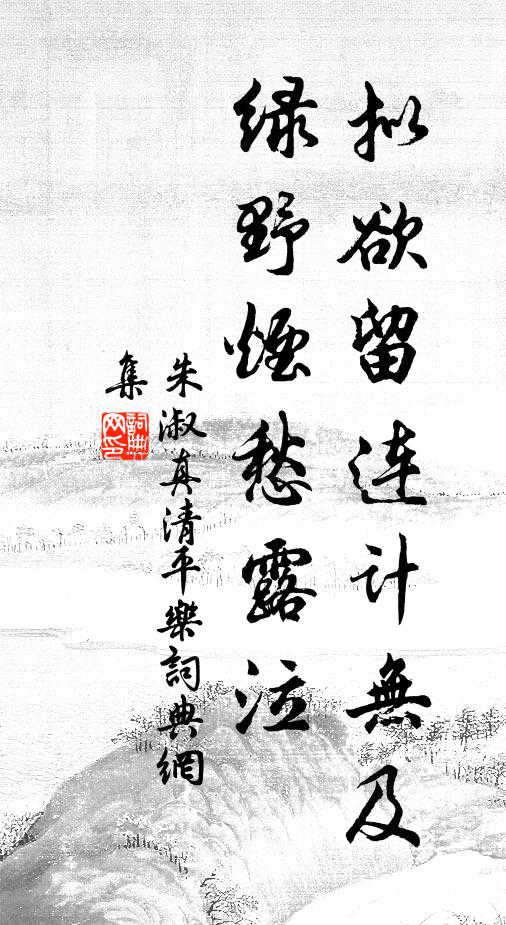 拟欲留连计無及
绿野煙愁露泣
朱淑真清平樂詞典網
集
詞典網印